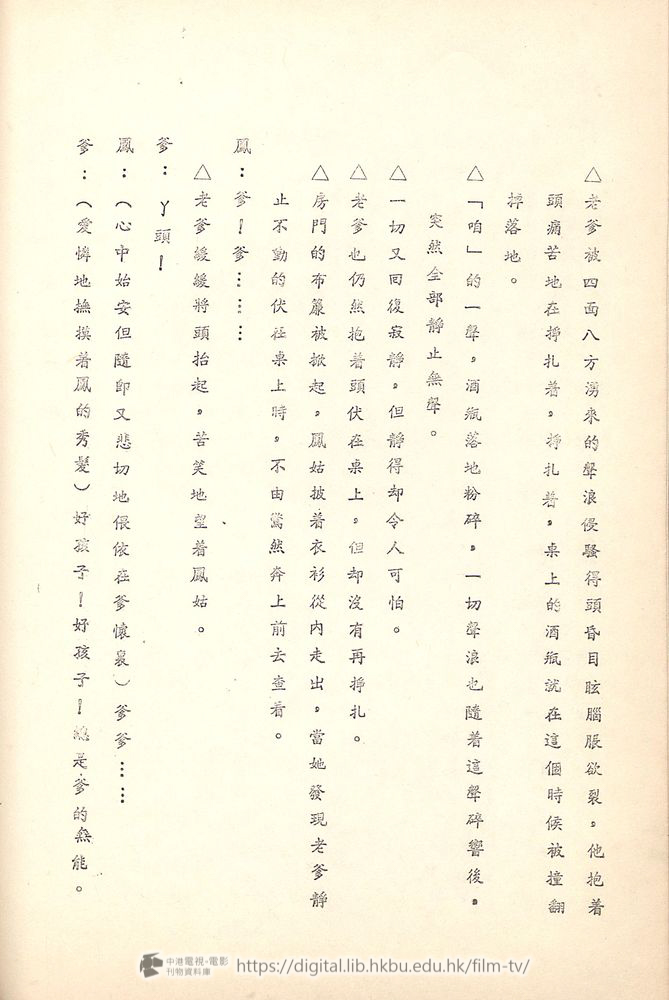 △老爹被四面八方湧來的聲浪侵騷得頭昏目眩腦脹欲裂。他抱着
頭痛苦地在掙扎着。掙扎着。桌上的酒瓶就在這個時候被撞翻
掉落地。
△「咱」的一聲。酒瓶落地粉碎。一切聲浪也隨着這聲碎響後。
突然全部靜止無聲。
△一切又回復寂靜。但靜得却令人可怕。
△老爹也仍然抱着頭伏在桌上。但却沒有再掙扎。
△房門的布簾被掀起。鳳姑披着衣衫從內走出。當她發現老爹靜
止不動的伏在桌上時。不由驚然奔上前去查看。
鳳：爹！爹⋯⋯
△老爹緩緩將頭抬起。苦笑地望着鳳姑。
爹：丫頭！
鳳：（心中始安但隨即又悲切地偎依在爹懷裏）爹爹⋯⋯
爹：（愛憐地撫摸着鳳的秀髮）好孩子！好孩子！總是爹的無能。
中港電視·電影
刊物資料庫
https://digital.lib.hkbu.edu.hk/film-tv/